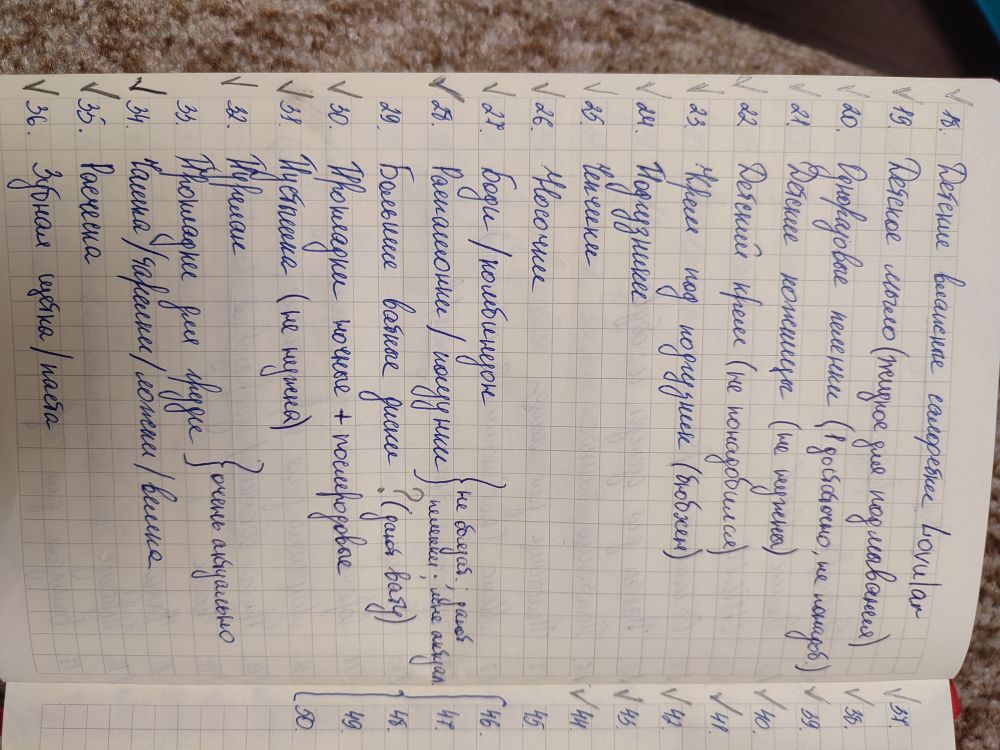 18. Детские влажные салфетки Lovular
19. Детское мыло (жидкое для подмывания)
20. Одноразовые пеленки (1 достаточно, не понадоб.)
21. Детские ножницы (не нужны)
22 Детский крем (не понадобился)
23 Крем под подгузник (бюбхен)
24. Подгузники
25. Чепчики
26. Носочки
27. Боди / комбинезон
28. Распашонки / ползунки } не более. дают пеленки;
29. Большие ватные диски ? (дают вату)
30. Прокладки ночные + послеродовые
31. Пустышка (не нужна)
32.
33. Прокладки для груди } очень актуально
34. Чашка / тарелки / ложки / вилка
35. Расческа
36. Зубная щетка / паста
37.
38.
39.
40.
41.
42.
43.
44.
45.
46.
47.
48.
49.
50